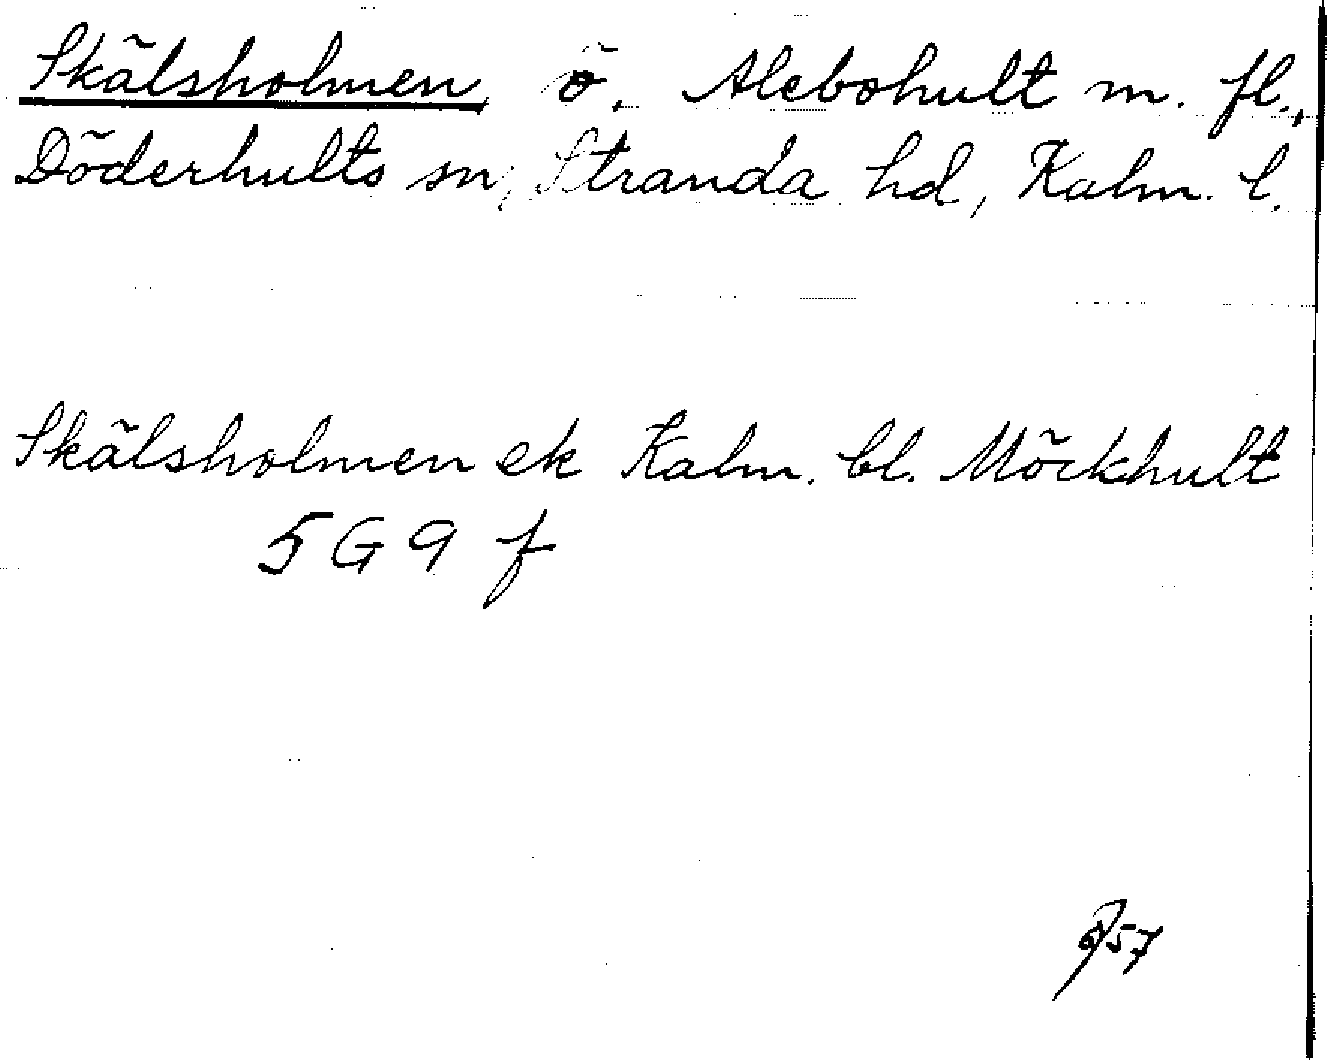 Skälsholmen, ö, Alebohult m. fl.,
Döderhults sn, Stranda hd, Kalm. l.
Skälsholmen ek Kalm. bl. Möckhult
5 G 9 f
57